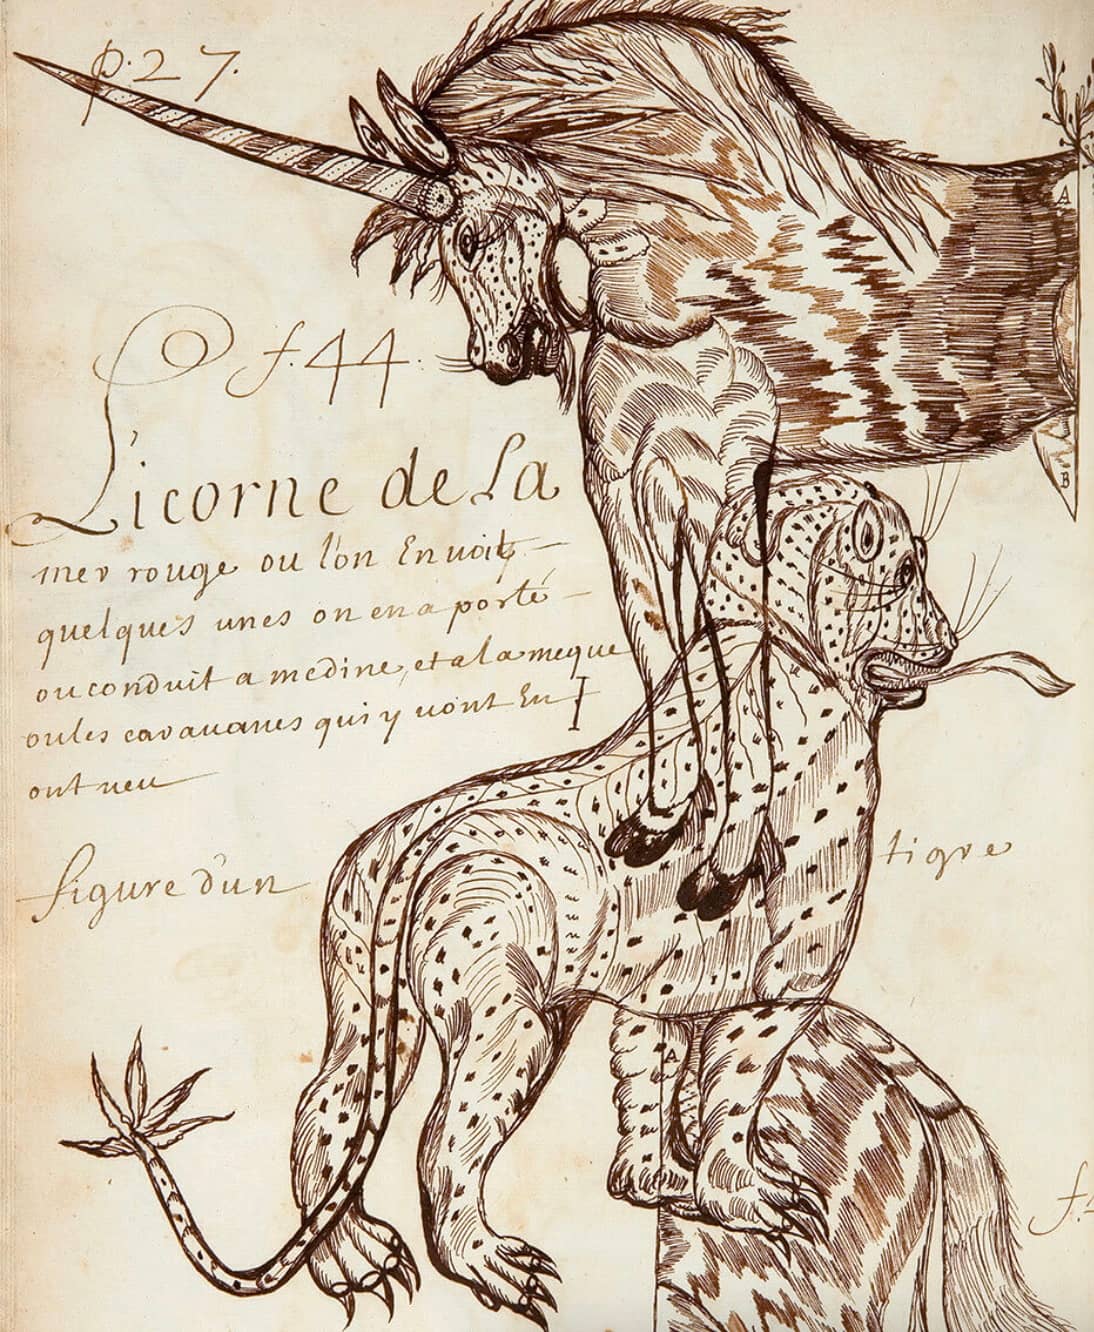 p. 27.
f. 44.
Licorne de La
mer rouge ou lon En uoit
quelques unes on en a porté
ou conduit a medine, et a la meque
ou les carauanes qui y uont En
ont ueu
figure d'un tigre
A
B
A
f.